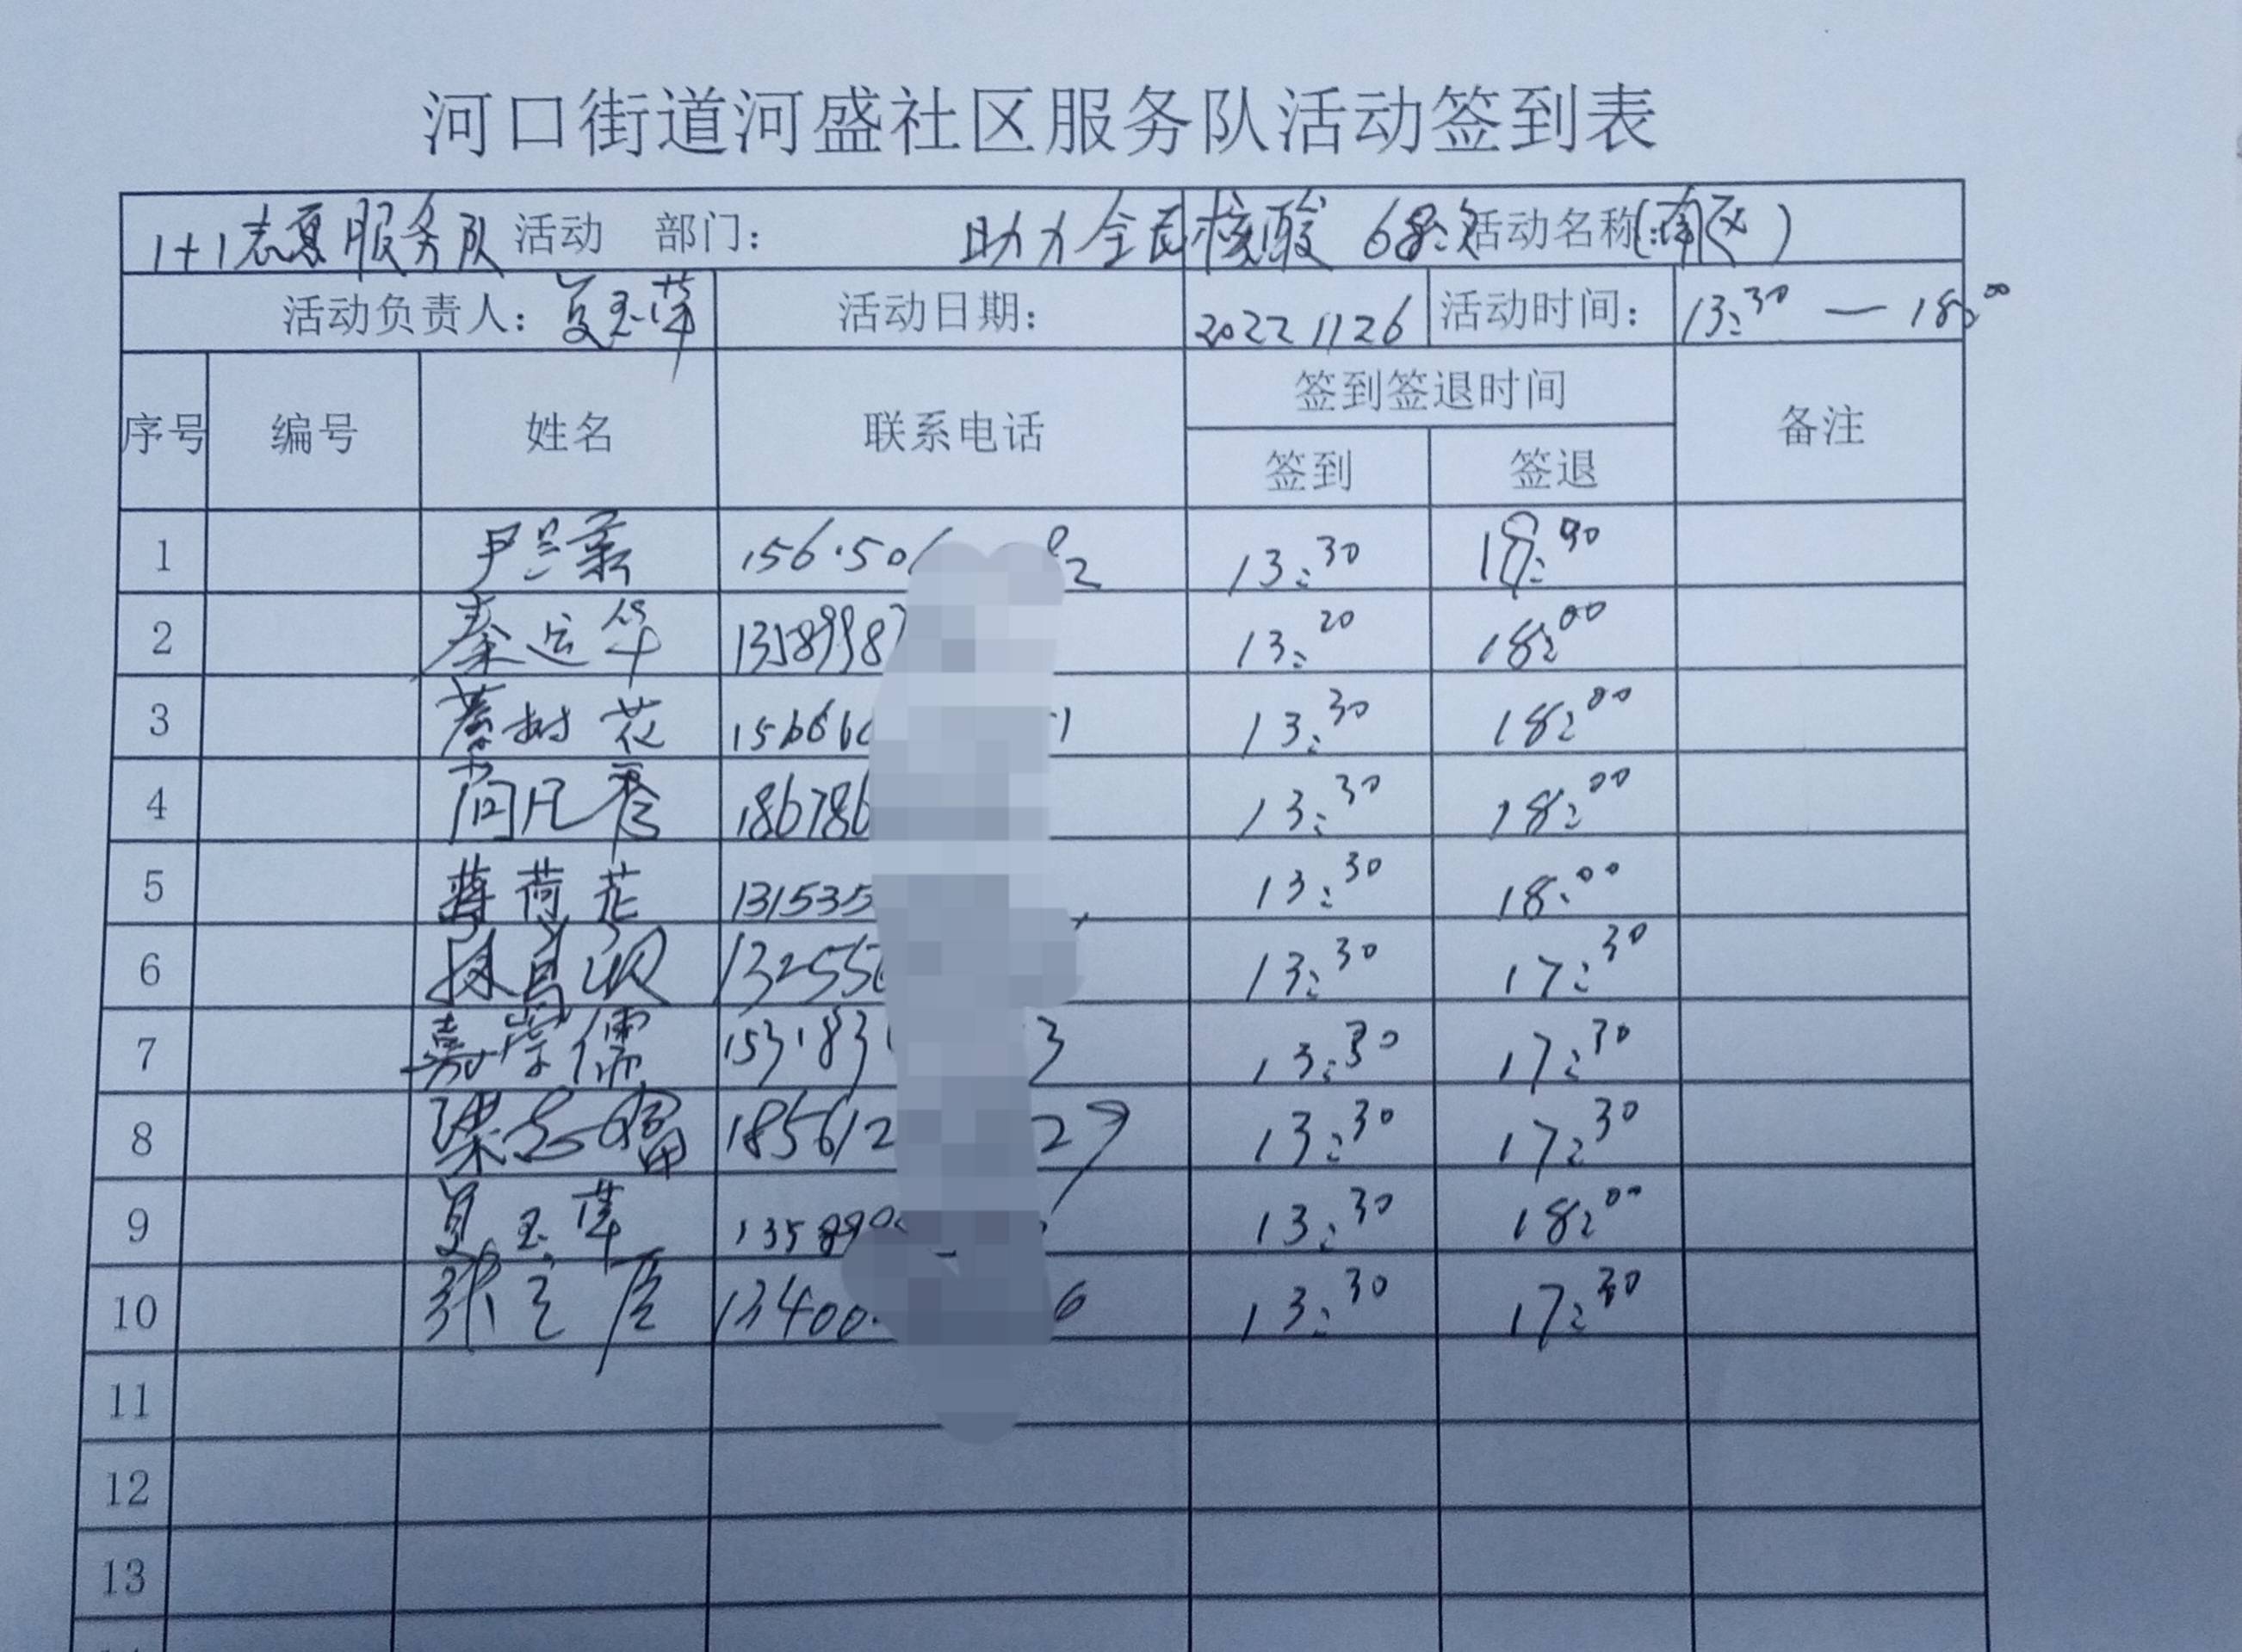 河口街道河盛社区服务队活动签到表
1+1志愿服务队 活动 部门： 助力全民核酸 68次 活动名称：(南区)
活动负责人： 夏玉萍 活动日期： 2022 11 26 活动时间： 13:30 — 18:00
序号 编号 姓名 联系电话 签到签退时间 备注
签到 签退
1 尹兰 156·50 2 13:30 18:00
2 秦运华 1358998 13:20 18:00
3 树花 15666 1 13:30 18:00
4 186786 13:30 18:00
5 蒋荷花 131535 13:30 18:00
6 13255 13:30 17:30
7 儒 153·83 3 13:30 17:30
8 梁 富 185612 27 13:30 17:30
9 夏玉萍 13589 13:30 18:00
10 张 13400 6 13:30 17:30
11
12
13